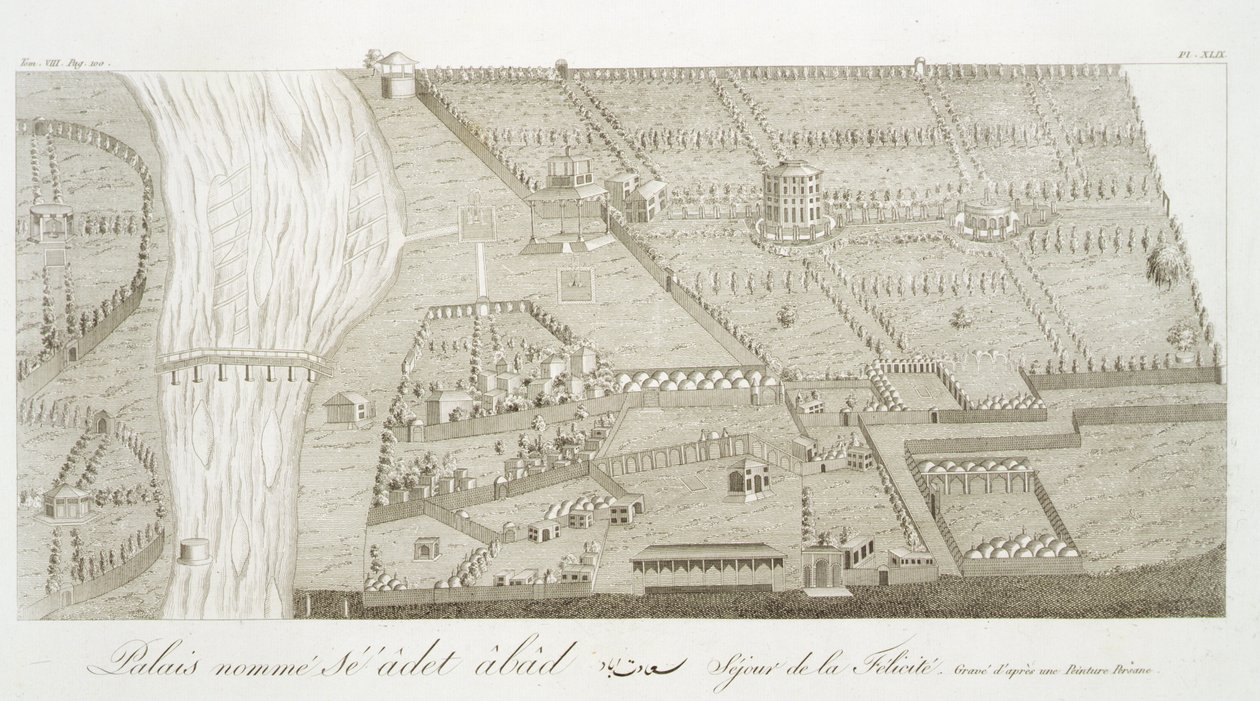 Tom. VIII. Pag. 100.
Pl. XLIX.
Palais nommé Sé'âdet âbâd سعادت آباد Séjour de la Félicité. Gravé d'après une Peinture Persane.